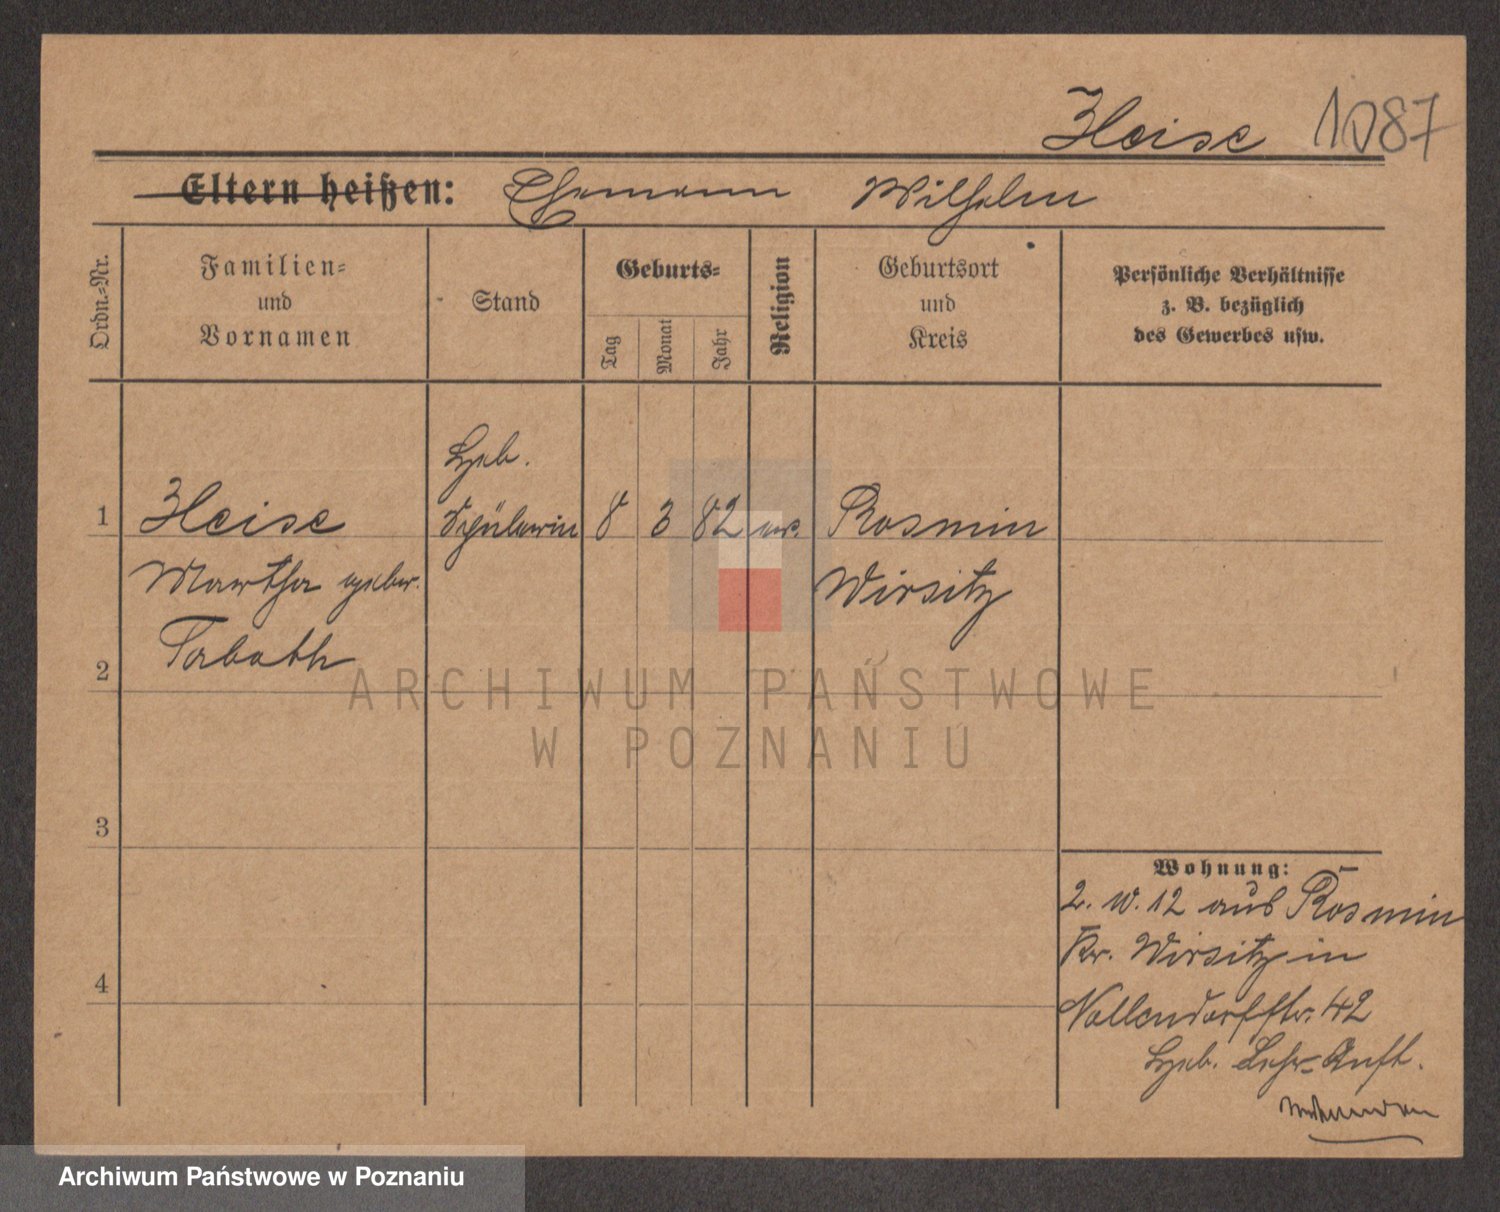 Heise 1087
Eltern heißen: Ehemann Wilhelm
Ordn.-Nr.
Familien-
und
Vornamen
Stand
Geburts-
Tag
Monat
Jahr
Religion
Geburtsort
und
Kreis
Persönliche Verhältnisse
z. B. bezüglich
des Gewerbes usw.
Heb.
1 Heise Schülerin 8 3 82 ev. Rosmin
Martha gebor. Wirsitz
2 Tabath
ARCHIWUM PAŃSTWOWE
W POZNANIU
3
4
Wohnung:
2. 10. 12 aus Rosmin
Kr. Wirsitz in
Nollendorfstr. 42
Heb. Lehr-Anst.
Archiwum Państwowe w Poznaniu